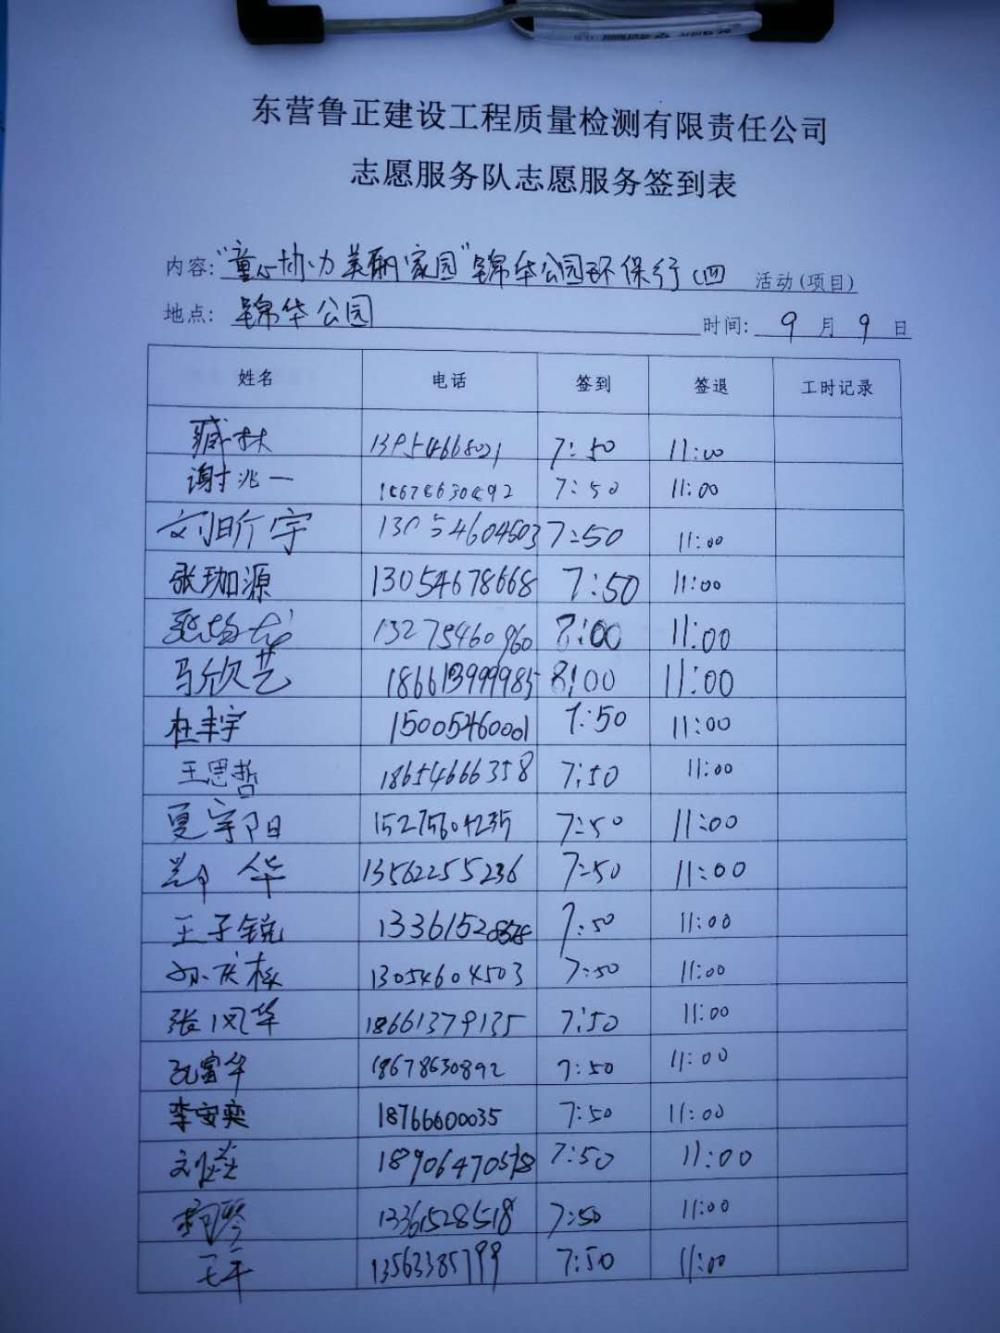 东营鲁正建设工程质量检测有限责任公司
志愿服务队志愿服务签到表
内容:“童心协力美丽家园”锦华公园环保行(四 活动(项目)
地点: 锦华公园 时间: 9月9日
姓名 电话 签到 签退 工时记录
臧林 13954668021 7:50 11:00
谢兆一 18678630892 7:50 11:00
刘昕宇 13054604503 7:50 11:00
张珈源 13054678668 7:50 11:00
13275460960 8:00 11:00
马欣艺 18661399985 8:00 11:00
杜丰宇 15005460001 7:50 11:00
王思哲 18654666358 7:50 11:00
夏宇阳 15275604235 7:50 11:00
郑华 13562255236 7:50 11:00
王子锐 7:50 11:00
孙庆梅 13054604503 7:50 11:00
张凤华 18661379135 7:50 11:00
阮富华 18678630892 7:50 11:00
李安奕 18766600035 7:50 11:00
刘 7:50 11:00
琴 13361528518 7:50 11:00
王平 13563385799 7:50 11:00